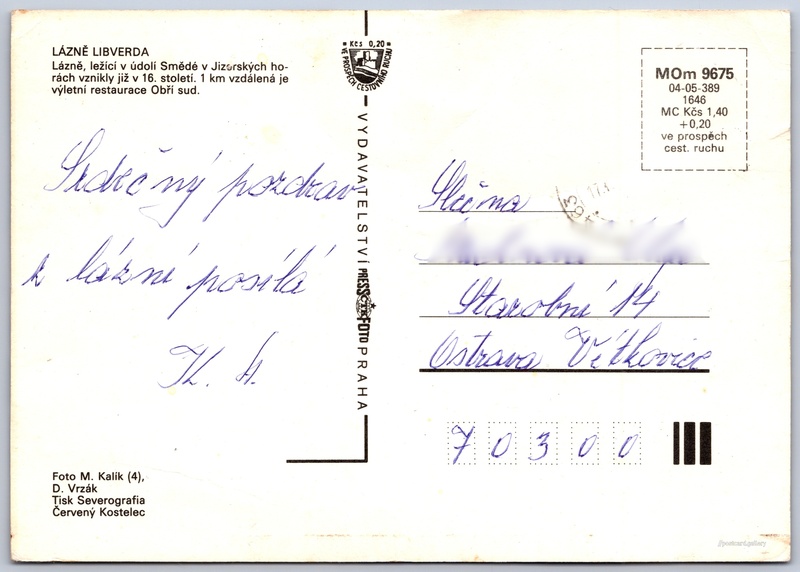 LÁZNĚ LIBVERDA
Lázně, ležící v údolí Smědé v Jizerských ho-
rách vznikly již v 16. století. 1 km vzdálená je
výletní restaurace Obří sud.
Srdečný pozdrav
z lázní posílá
K. A.
Foto M. Kalík (4),
D. Vrzák
Tisk Severografia
Červený Kostelec
Kčs 0,20
VE PROSPĚCH CESTOVNÍHO RUCHU
VYDAVATELSTVÍ PRESSFOTO PRAHA
MOm 9675
04-05-389
1646
MC Kčs 1,40
+0,20
ve prospěch
cest. ruchu
Slečna
Starobní 14
Ostrava Vítkovice
70300